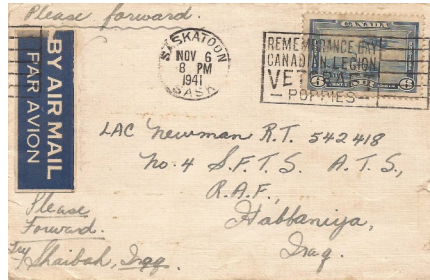 Please forward.
BY AIR MAIL
PAR AVION
SASKATOON
NOV 6
8 PM
1941
SASK.
REMEMBRANCE DAY
CANADIAN LEGION
VETCRAFT
POPPIES
CANADA
6
6
LAC Newman R.T. 542418
No. 4 S.F.T.S. A.T.S.,
R.A.F.,
Habbaniya,
Iraq.
Please
Forward.
Try Shaibah, Iraq.